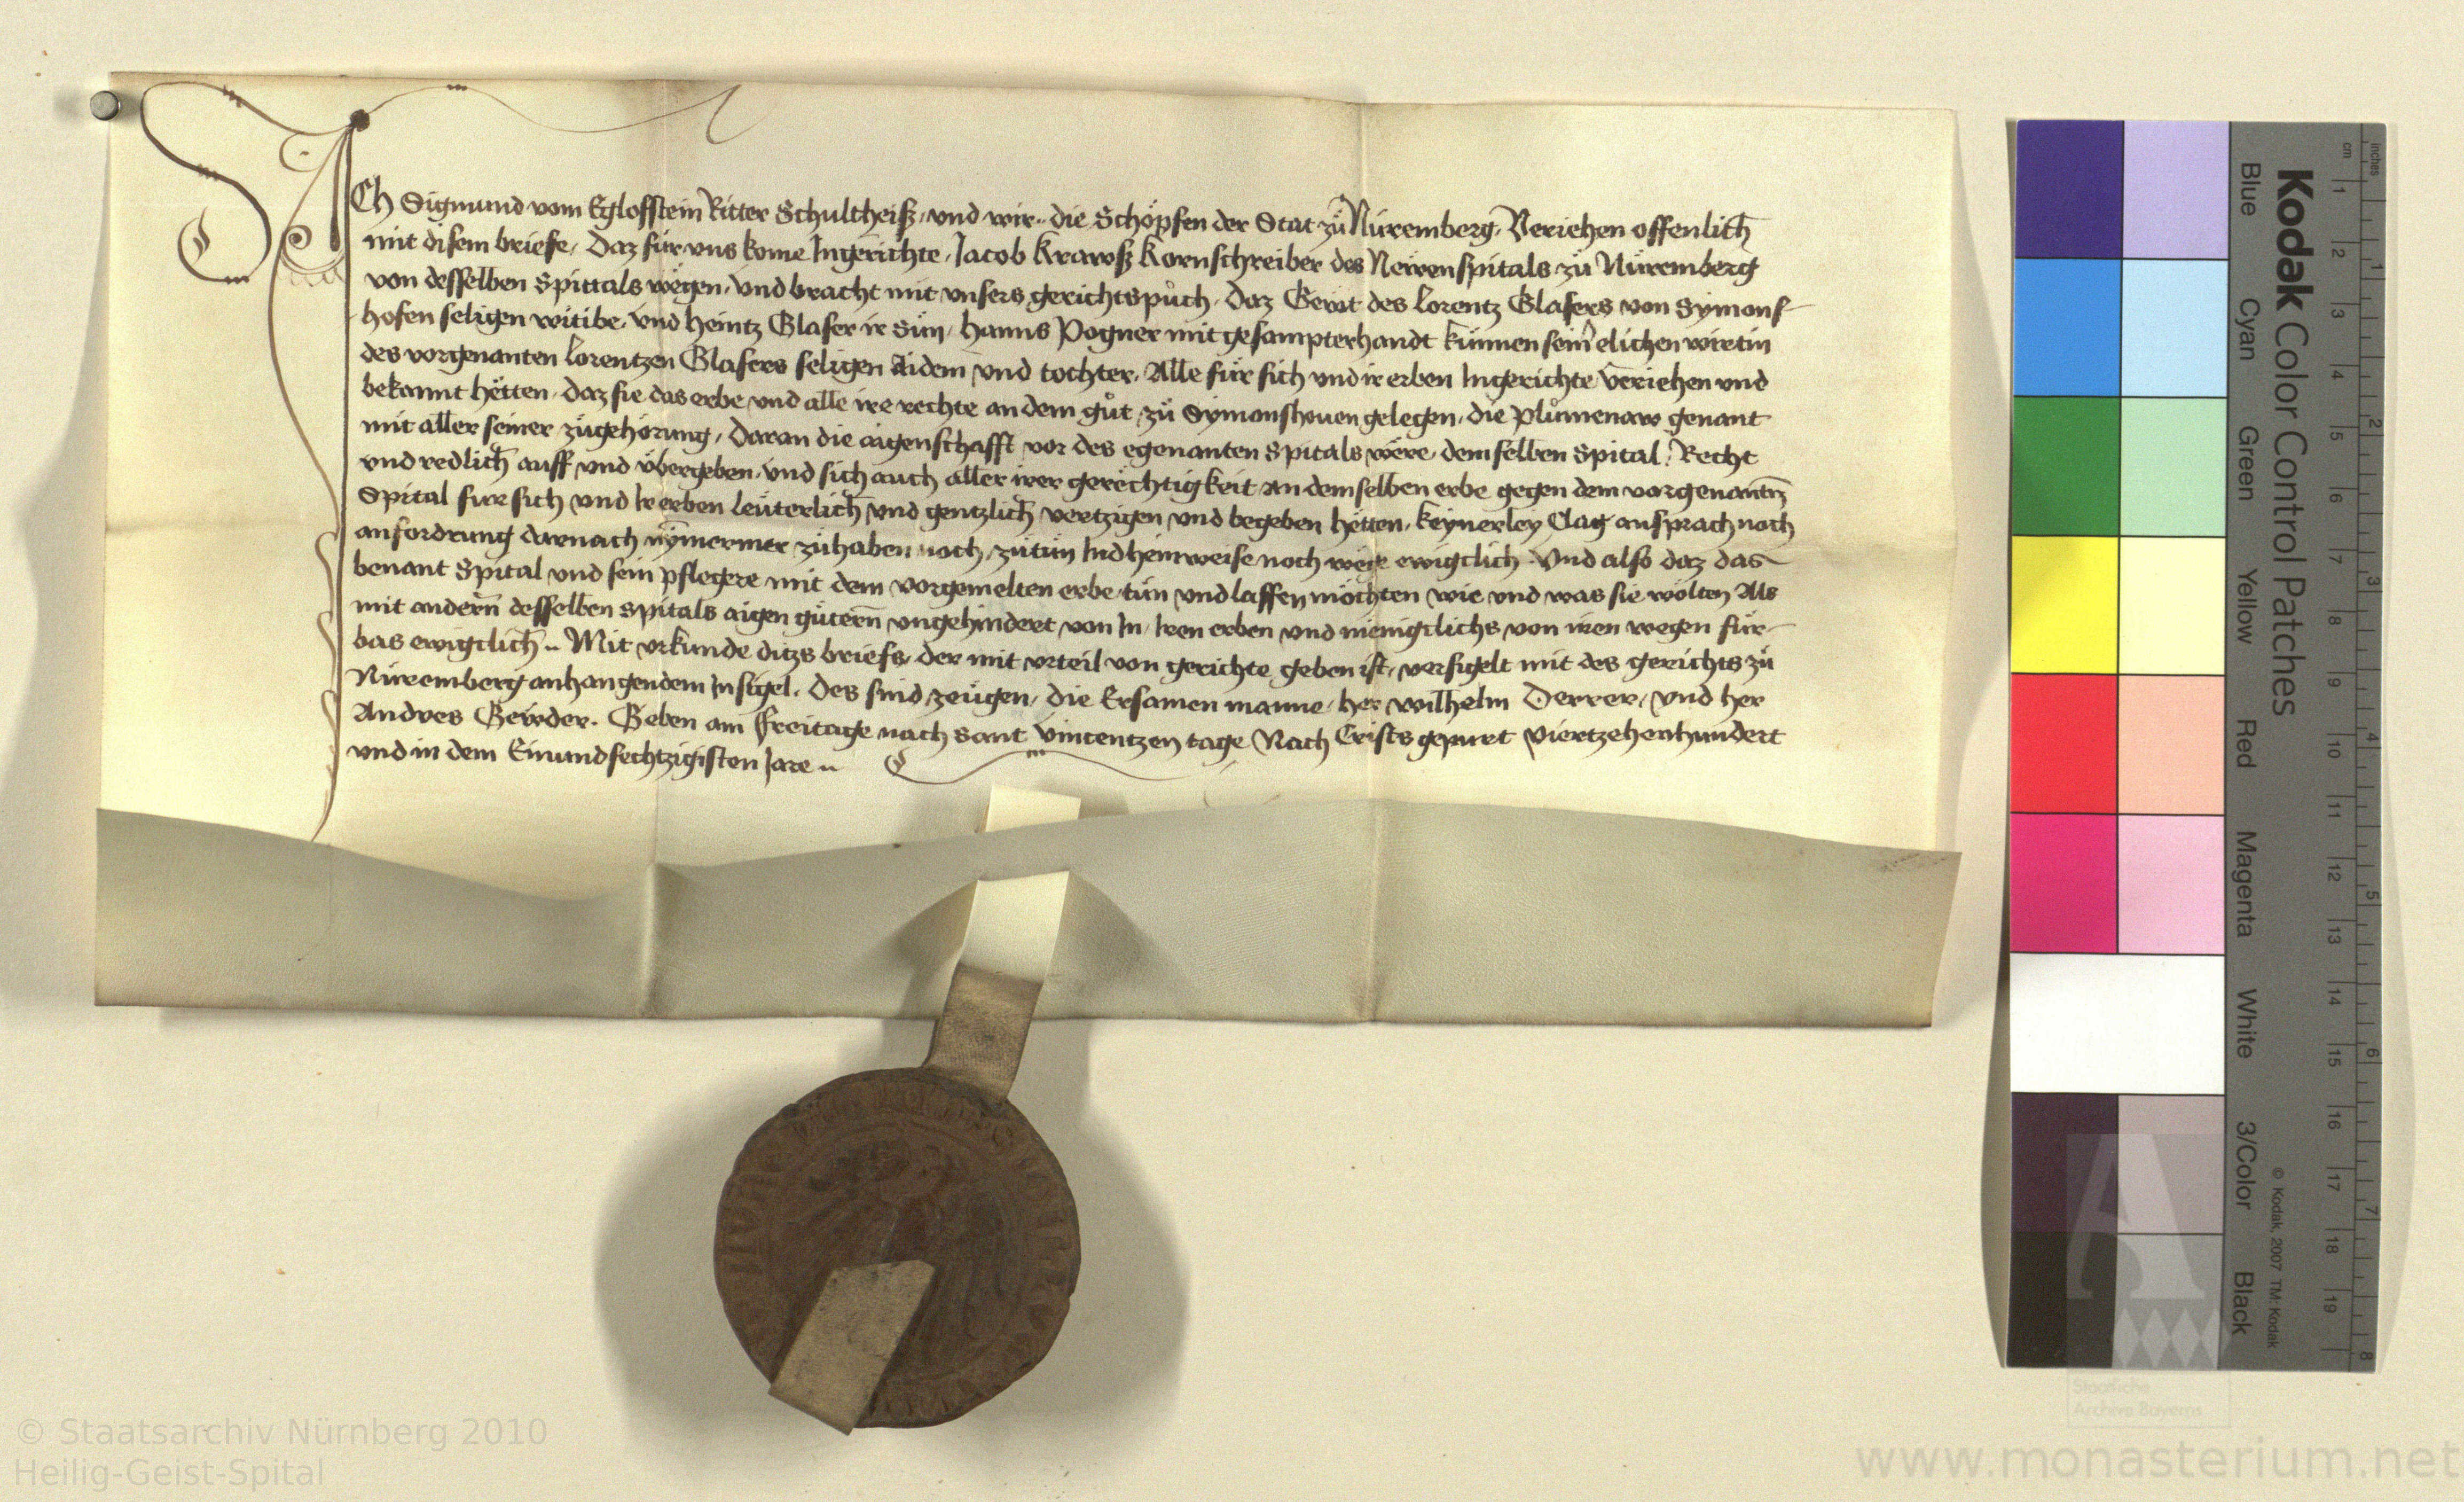 ICh Sigmund vom Eglofstein Ritter Schultheiß, und wir.. die Schöpfen der Stat zů Nüremberg, Veriehen offenlich
mit disem briefe, Daz für uns kome Ingerichte, Jacob Krawß Kornschreiber des Newen spitals zů Nüremberg
von desselben Spittals wegen, Und bracht mit unsers gerichtspůch, Daz Gewt des Lorentz Glasers von Symons-
hofen seligen witibe, Und Heintz Glaser ir Sůn, Hanns Pogner mit gesampterhandt seiner elichen wirtin
des vorgenanten Lorentzen Glasers seligen Aidem Und tochter, Alle für sich und ir erben Ingerichte Veriehen und
bekannt hetten, daz sie das erbe und alle ire rechte an dem gůt zů Symonshouen gelegen, die Plůmenaw genant
mit aller seiner zůgehörung, daran die aigenschafft vor des egenanten Spitals were, demselben Spital, Recht
und redlich auff und übergeben, Und sich auch aller irer gerechtigkeit an demselben erbe gegen dem vorgenantn
Spital fur sich und Ir erben leüterlich und gentzlich vertzigen und begeben hetten, keynerley Clag ansprach noch
anfordrung darnach nymermer zůhaben noch zůtůn Indheinweise noch wege ewigclich. Und also daz das
benant Spital und sein pflegere mit dem vorgemelten erbe tůn und lassen möchten wie und was sie wolten Als
mit andern desselben spitals aigen gütern ungehindert von In, Iren erben und menigclichs von iren wegen für-
bas ewigclich.. Mit urkunde ditzs briefs, der mit urteil von gerichte geben ist, versigelt mit des gerichts zů
Nüremberg anhangendem Insigel. Des sind zeügen, die Ersamen manne, her Wilhelm Derrer, und her
Andres Gewder. Geben am Freitage nach Sant Vincentzen tage Nach Crists gepurt Viertzehenhundert
und in dem Einundsechtzigisten Jare ..
Kodak Color Control Patches
Blue Cyan Green Yellow Red Magenta White 3/Color Black
© Kodak, 2007 TM: Kodak
cm 1 2 3 4 5 6 7 8 9 10 11 12 13 14 15 16 17 18 19
inches 1 2 3 4 5 6 7 8
Staatliche
Archive Bayerns
© Staatsarchiv Nürnberg 2010
Heilig-Geist-Spital
www.monasterium.net